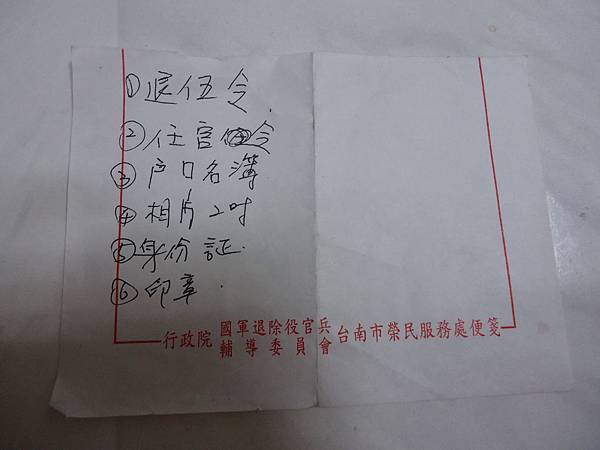 ①退伍令.
②任官令
③戶口名簿
④相片2吋
⑤身份証.
⑥印章.
行政院國軍退除役官兵輔導委員會台南市榮民服務處便箋